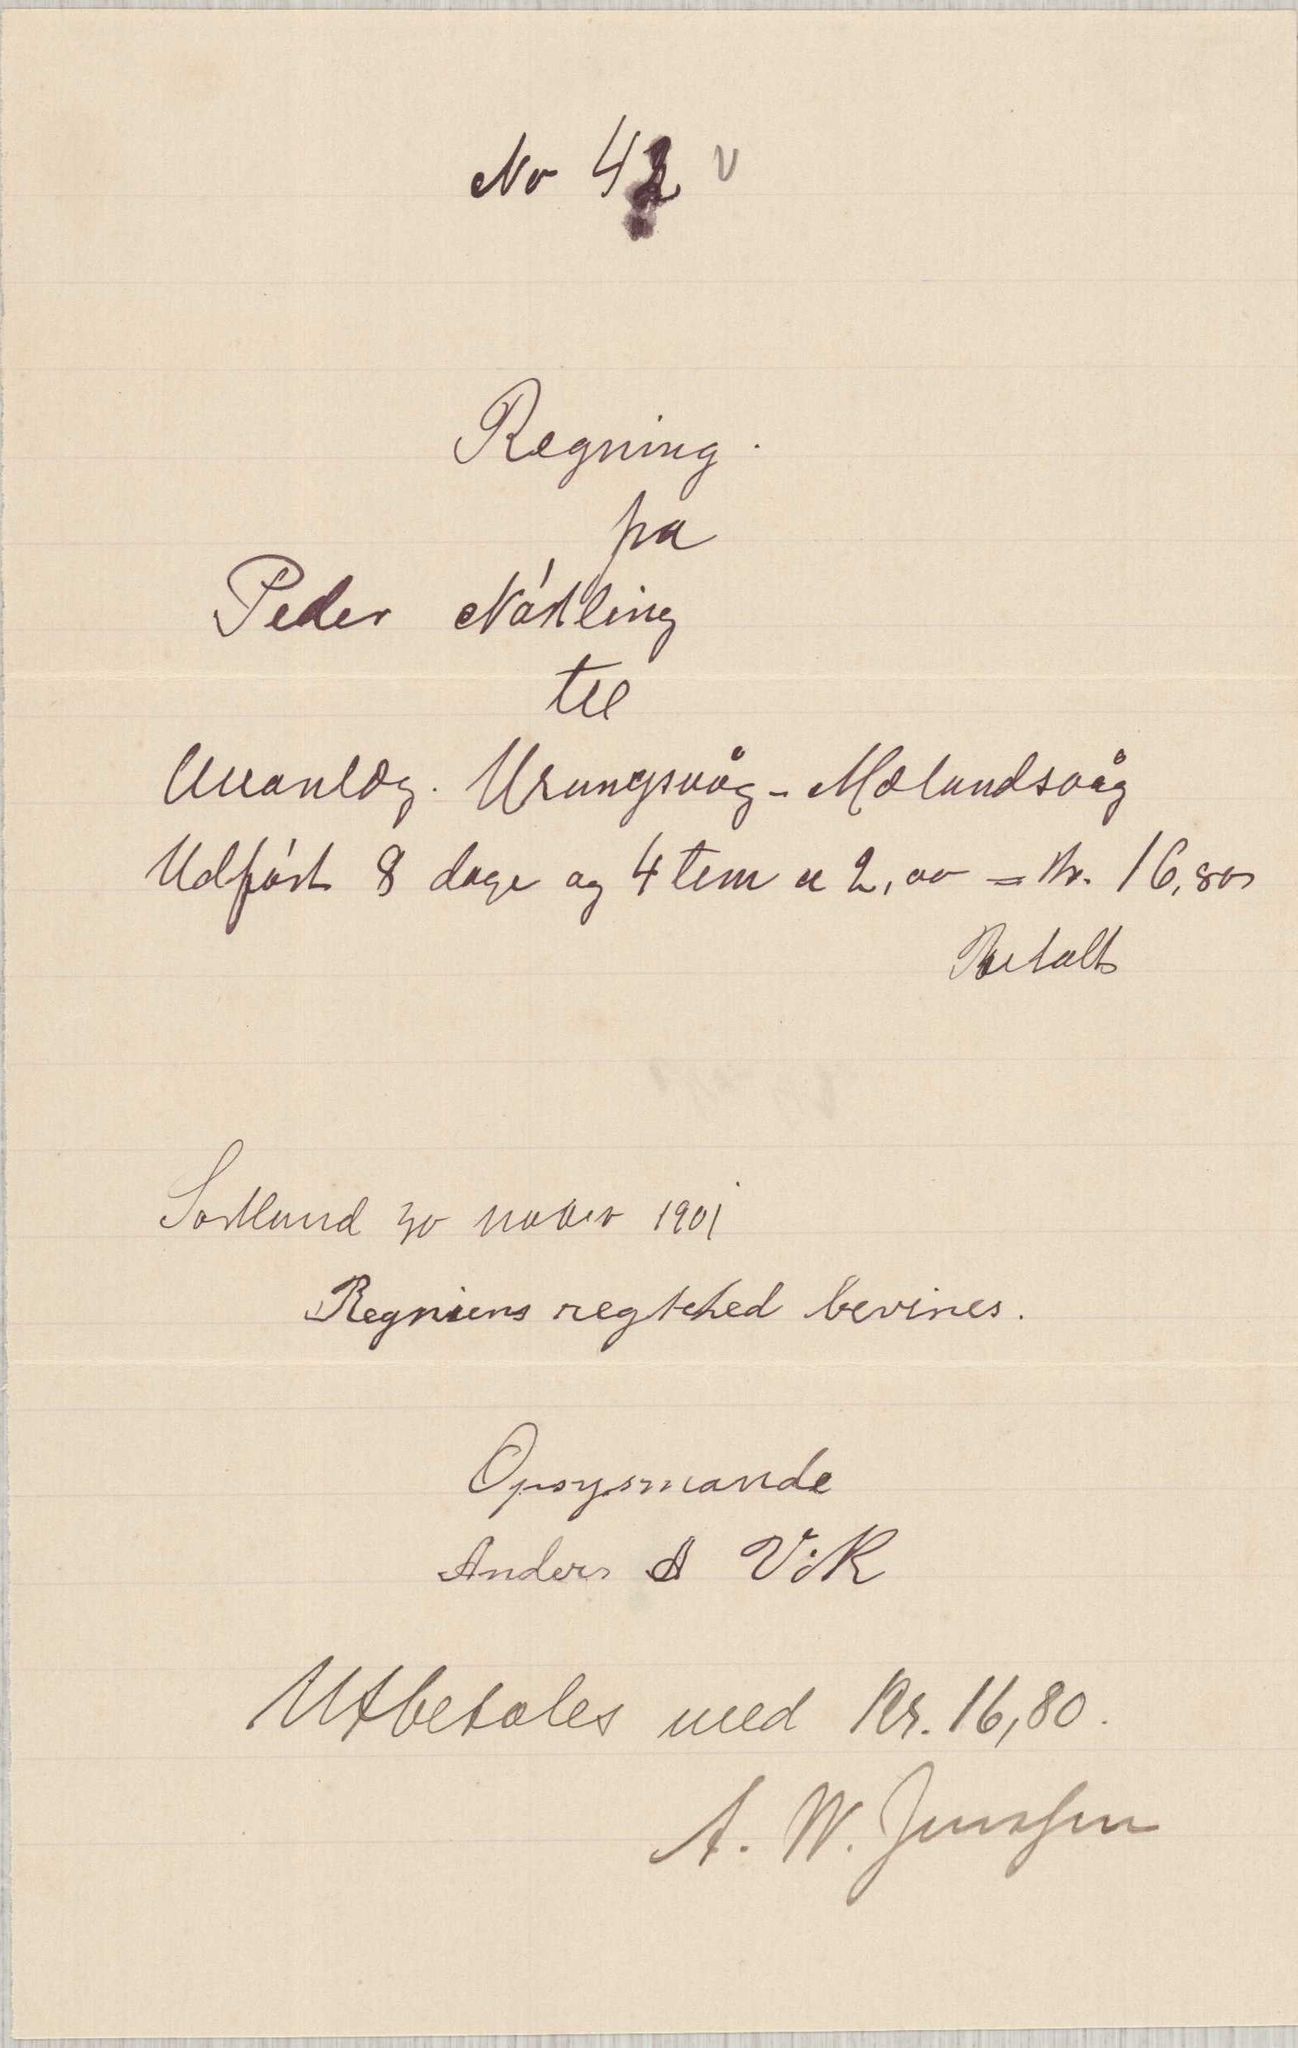 No 42 v
Regning.
fra
Peder Nástling
til
Veianlæg. Urangsvåg - Mælandsvåg
Udfórt 8 dage og 4 tim a 2,00 = Kr. 16,80
Betalt
Sortland 30 nober 1901
Regniens regtehed bevines.
Opsysmande
Anders A Vik
Utbetales med Kr. 16,80.
A. W. Jenssen